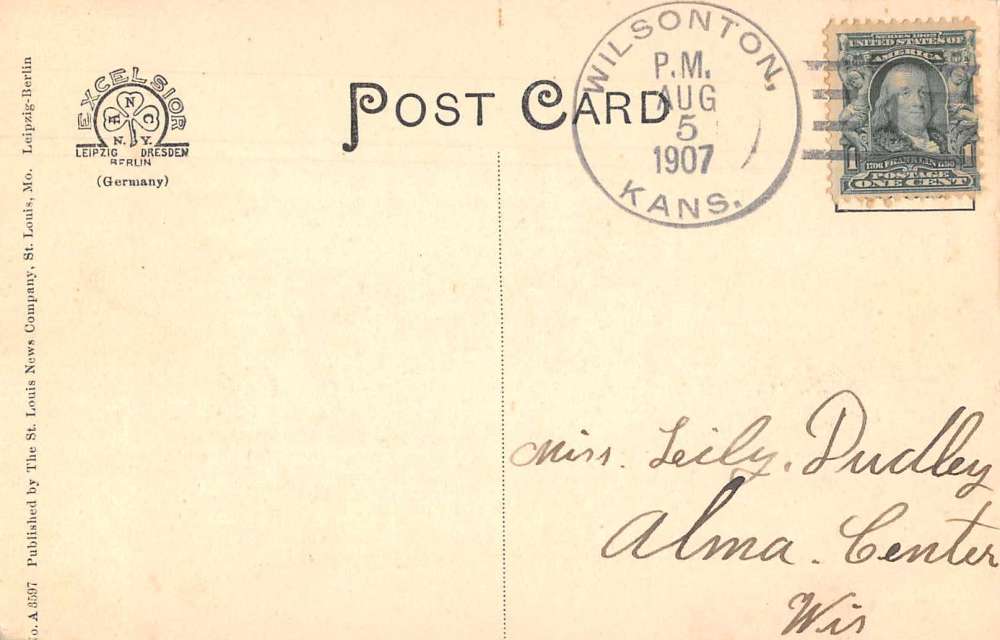 No. A 8597 Published by The St. Louis News Company, St. Louis, Mo. Leipzig-Berlin
EXCELSIOR
A N C.
N. Y.
LEIPZIG DRESDEN
BERLIN
(Germany)
POST CARD
WILSONTON,
P.M.
AUG
5
1907
KANS.
SERIES 1902
UNITED STATES OF
AMERICA
1706 FRANKLIN 1790
1 1
POSTAGE
ONE CENT
Miss. Leily. Dudley
Alma. Center
Wis